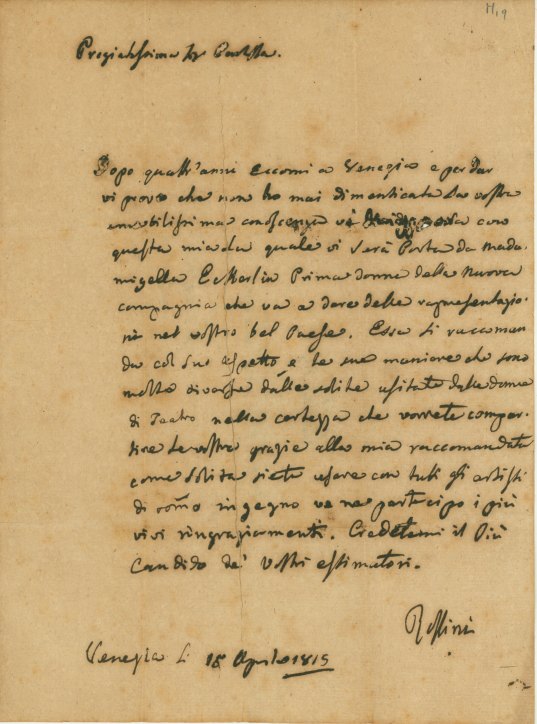 H, 9
Pregiatissima Sig. Contessa.
Dopo quatt'anni eccomi a Venezia e per dar
vi prova che non ho mai dimenticata la vostra
amabilissima conoscenza vi con
questa mia la quale vi serà Porta da Mada
migella Eckerlin Prima donna della Nuova
compagnia che va a dare delle rapresentazio-
ni nel vostro bel Paese. Essa si raccoman
da col suo aspetto, e le sue maniere che sono
molto diverse dalle solite usitate dalle donne
di Teatro nella certezza che vorrete compar-
tire le vostre grazie alla mia raccomandata
come solita siete usare con tutti gli artisti
di ingegno ve ne partecipo i più
vivi ringraziamenti. Credetemi il Più
candido de' vostri estimatori.
Rossini
Venezia li 18 Aprile 1815